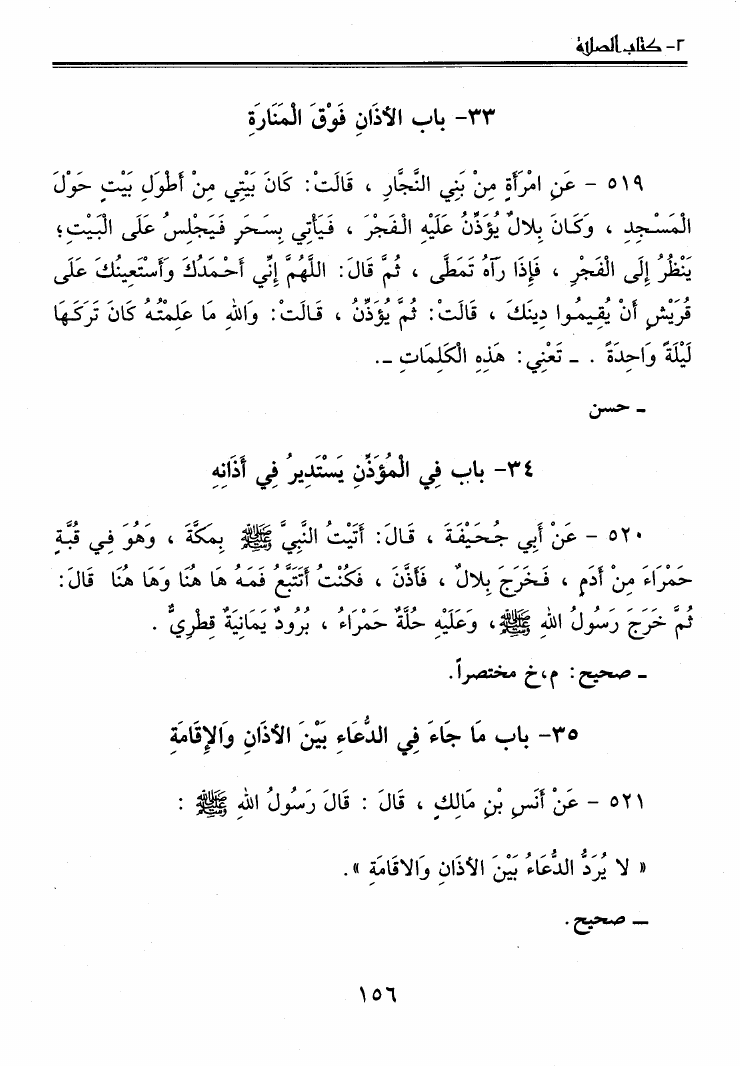 ٢- كتاب الصلاة
٣٣- باب الأذَانِ فَوْقَ الْمَنَارَةِ
٥١٩ – عَنِ امْرَأَةٍ مِنْ بَنِي النَّجَّارِ ، قَالَتْ: كَانَ بَيْتِي مِنْ أَطْوَلِ بَيْتٍ حَوْلَ
الْمَسْجِدِ ، وَكَانَ بِلالٌ يُؤَذِّنُ عَلَيْهِ الْفَجْرَ ، فَيَأْتِي بِسَحَرٍ فَيَجْلِسُ عَلَى الْبَيْتِ؛
يَنْظُرُ إِلَى الْفَجْرِ ، فَإِذَا رَآهُ تَمَطَّى ، ثُمَّ قَالَ: اللَّهُمَّ إِنِّي أَحْمَدُكَ وَأَسْتَعِينُكَ عَلَى
قُرَيْشٍ أَنْ يُقِيمُوا دِينَكَ ، قَالَتْ: ثُمَّ يُؤَذِّنُ ، قَالَتْ: وَاللهِ مَا عَلِمْتُهُ كَانَ تَرَكَهَا
لَيْلَةً وَاحِدَةً . ـ تَعْنِي: هَذِهِ الْكَلِمَاتِ ـ.
ـ حسن
٣٤- باب فِي الْمُؤَذِّنِ يَسْتَدِيرُ فِي أَذَانِهِ
٥٢٠ – عَنْ أَبِي جُحَيْفَةَ ، قَالَ: أَتَيْتُ النَّبِيَّ ﷺ بِمَكَّةَ ، وَهُوَ فِي قُبَّةٍ
حَمْرَاءَ مِنْ أَدَمٍ ، فَخَرَجَ بِلالٌ ، فَأَذَّنَ ، فَكُنْتُ أَتَتَبَّعُ فَمَهُ هَا هُنَا وَهَا هُنَا قَالَ:
ثُمَّ خَرَجَ رَسُولُ اللهِ ﷺ، وَعَلَيْهِ حُلَّةٌ حَمْرَاءُ ، بُرُودٌ يَمَانِيَةٌ قِطْرِيٌّ .
ـ صحيح: م،خ مختصراً.
٣٥- باب مَا جَاءَ فِي الدُّعَاءِ بَيْنَ الأذَانِ وَالإِقَامَةِ
٥٢١ – عَنْ أَنَسِ بْنِ مَالِكٍ ، قَالَ : قَالَ رَسُولُ اللهِ ﷺ :
« لا يُرَدُّ الدُّعَاءُ بَيْنَ الأذَانِ وَالاقَامَةِ ».
ـ صحيح.
١٥٦